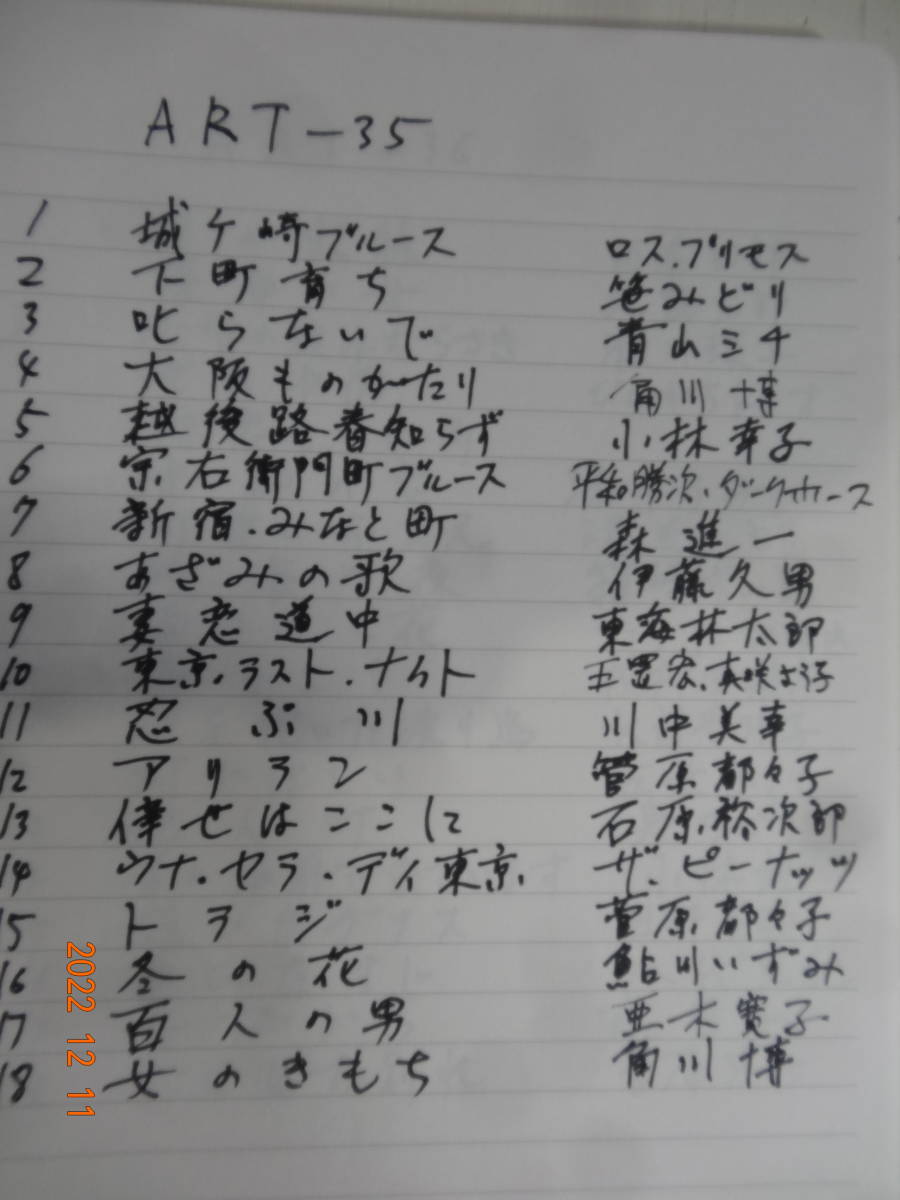 ART-35
1 城ケ崎ブルース ロス.プリモス
2 下町育ち 笹みどり
3 叱らないで 青山ミチ
4 大阪ものがたり 角川博
5 越後路番知らず 小林幸子
6 宗右衛門町ブルース 平和勝次.ダークホース
7 新宿.みなと町 森進一
8 あざみの歌 伊藤久男
9 妻恋道中 東海林太郎
10 東京.ラスト.ナイト 五置宏.真咲よう子
11 忍ぶ川 川中美幸
12 アリラン 菅原都々子
13 倖せはここに 石原裕次郎
14 ウナ.セラ.ディ東京 ザ.ピーナッツ
15 トラジ 菅原都々子
16 冬の花 鮎川いずみ
17 百人の男 亜木寛子
18 女のきもち 角川博
2022 12 11